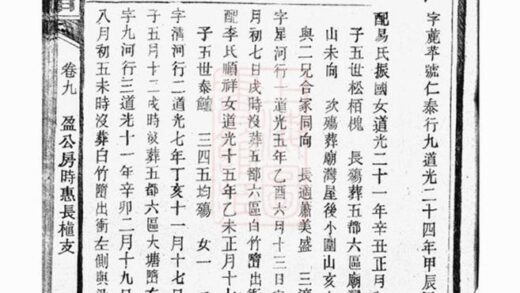 字蓂莘號仁泰行九道光二十四年甲辰
配易氏振國女道光二十一年辛丑正月
子五世松栢槐 長殤葬五都六區廟
山未向 次殤葬廟灣屋後小圍山亥
與二兄合冢同向 長適蕭美盛 三
字星河行十道光五年乙酉六月十三日
月初七日戌時沒葬五都六區白竹嶅出
配李氏順祥女道光十五年乙未正月十
子五世泰鐩 三四五均殤 女一
字清河行二道光七年丁亥十一月十七
子五月十二戌時歿葬五都六區大塘嶅
字九河行三道光十一年辛卯二月十九
八月初五未時沒葬白竹嶅出衝左側與
卷九 盈公房時惠長植支